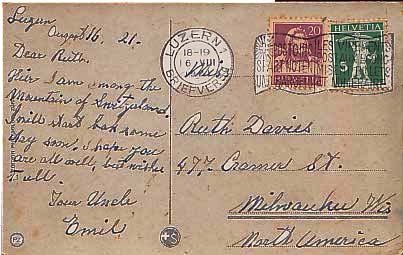 Luzern
August 16, 21.
Dear Ruth.
Heir I am among the
Mountain of Switzerland.
I will start back some
day soon. I hope you
are all well, best wishes
to all.
Your Uncle
Emil
LUZERN 1
18-19
16 VIII
BRIEFVERS
20
HELVETIA
HELVETIA
5
Ruth Davies
477 Cramer St.
Milwaukee Wis
North America